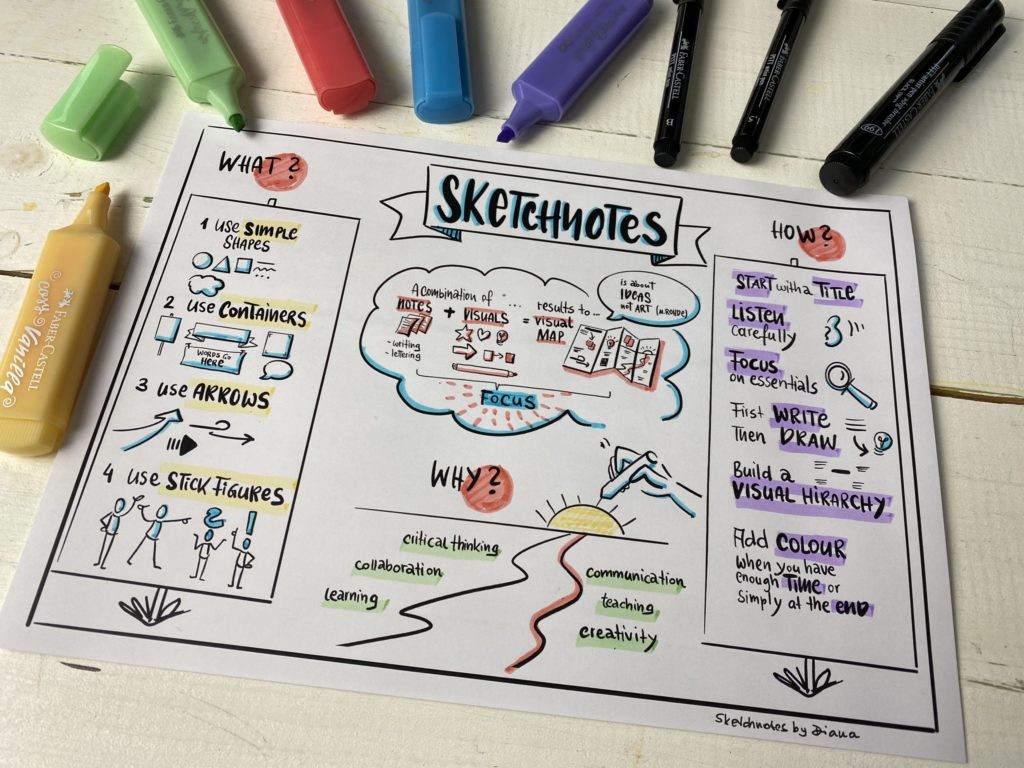 SKETCHNOTES
WHAT?
1 use SIMPLE
SHAPES
2 use CONTAINERS
WORDS GO
HERE
3 use ARROWS
4 use STICK FIGURES
? !
A combination of ....
NOTES + VISUALS
- writing
- lettering
results to...
= visual
MAP
is about
IDEAS
not ART (M.ROHDE)
FOCUS
WHY?
critical thinking
collaboration
learning
communication
teaching
creativity
HOW?
START with a TITLE
LISTEN
carefully
FOCUS
on essentials
First WRITE
Then DRAW
Build a
VISUAL HIRARCHY
Add COLOUR
when you have
enough TIME or
simply at the END
Sketchnotes by Diana
FABER-CASTELL
cosy Vanilla
FABER-CASTELL
B
FABER-CASTELL
1.5
FABER-CASTELL